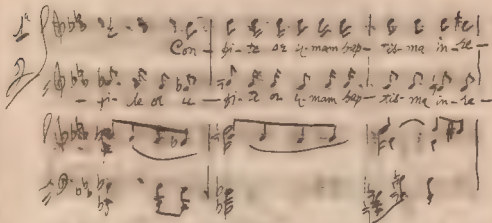 Con - fi - te or u - num bap - tis - ma in - re -
- fi - te or u - fi - te or u - num bap - tis - ma in - re -